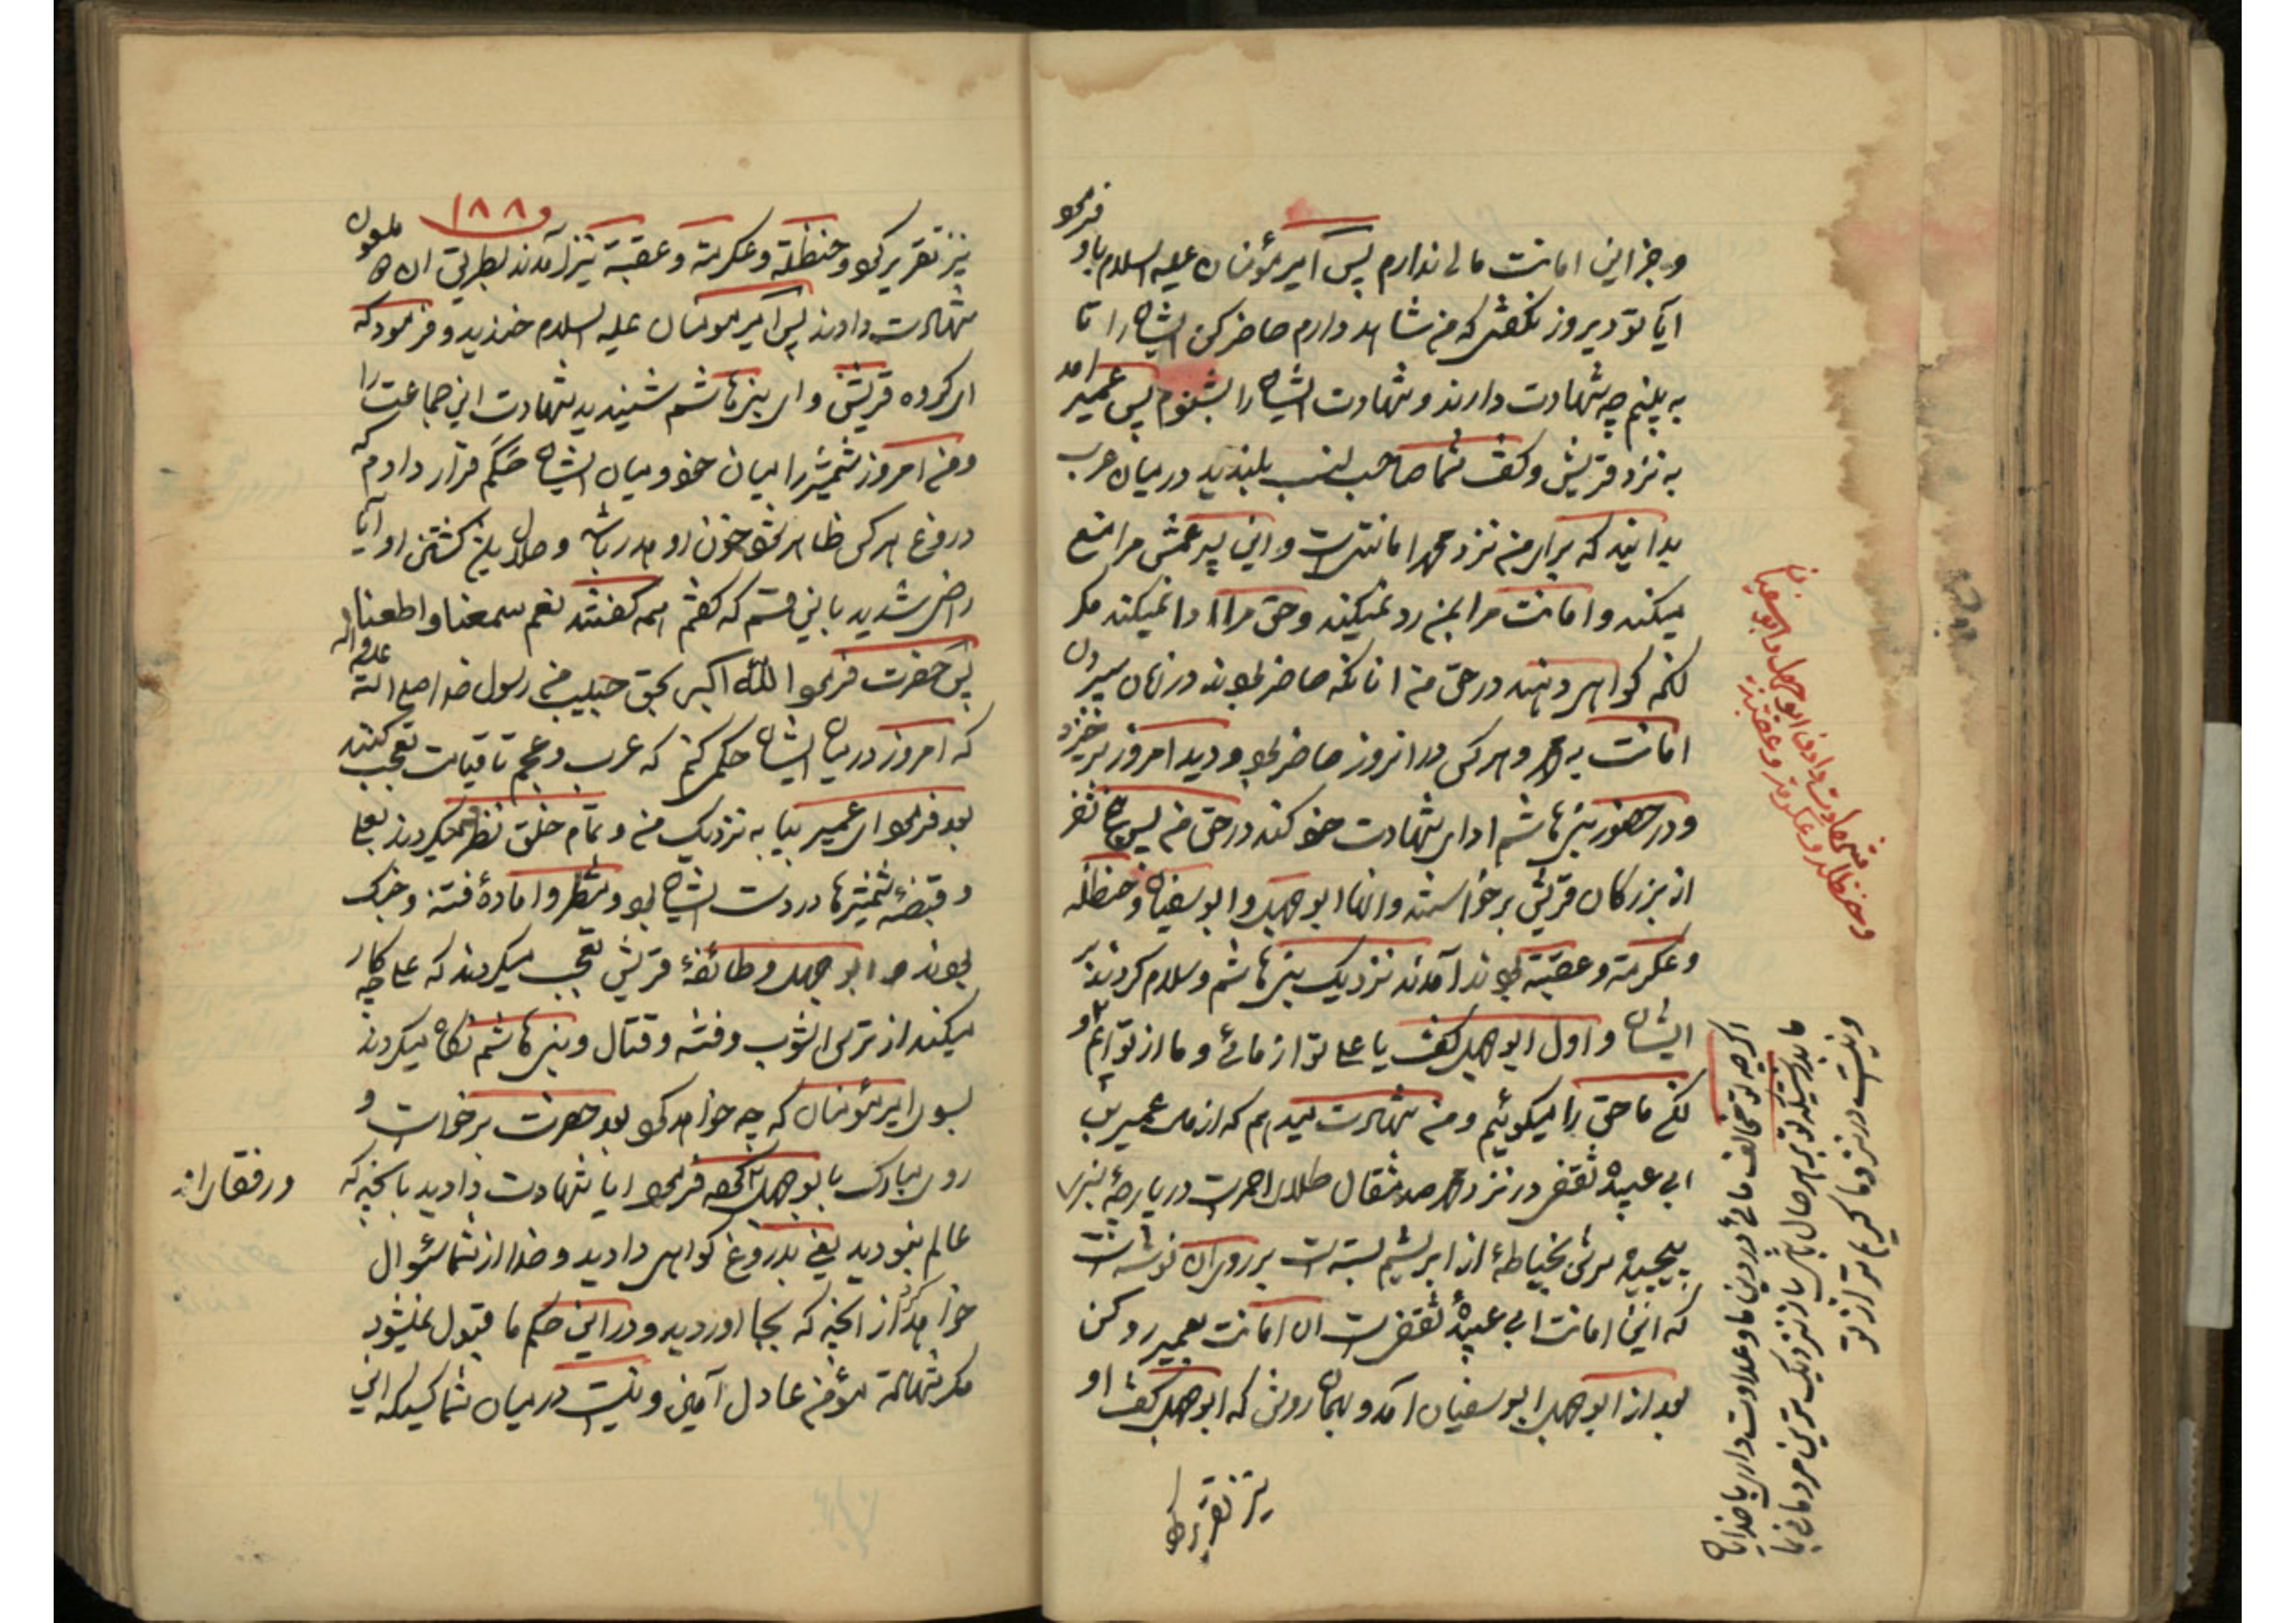 و جز این امانت مالی ندارم پس امیر مؤمنان علیه السلام باو فرمود
آیا تو دیروز نگفتی که من شاهد دارم حاضر کن ایشان را تا
به بینم چه شهادت دارند و شهادت ایشان را بشنوم پس عمیر امد
به نزد قریش و گفت شما صاحب نسب بلندید در میان عرب
بدانید که برای من نزد محمد امانتی است و این پسر عمش مرا منع
میکند و امانت مرا بمن رد نمیکند و حق مرا ادا نمیکند مکر
انکه کواهی دهند در حق من انانکه حاضر بودند در زمان سپردن
امانت به محمد و هر کس در انروز حاضر بود و دید امروز برخیزد
و در حضور بنی هاشم ادای شهادت خود کند در حق من پس پنج نفر
از بزرکان قریش برخواستند و انها ابوجهل و ابو سفیان و حنظله
و عکرمة و عقبة بودند آمدند نزدیک بنی هاشم و سلام کردند بر
ایشان و اول ابوجهل گفت یا علی تو از مائی و ما از توایم و
لکن ما حق را میکوئیم و من شهادت میدهم که از مال عمیر بن
ابی عبیده ثقفی در نزد محمد صد مثقال طلای احمر است در پارچهٔ سبزی
پیچیده شده بخیاطهٔ از ابریشم بسته است بر روی ان نوشته است
که این امانت ابی عبیدهٔ ثقفی است ان امانت بعمیر رد کن
بعد از ابوجهل ابو سفیان آمد و بهمان روش که ابوجهل گفت او
نیز تقریر کرد
شهادت دادن ابوجهل و ابو سفیان
و حنظله و عکرمة و عقبة
اکرچه تو مخالف مائی در دین ما و عداوت داری با خدایان
ما بدرستیکه تو بر هر حال باشی نزدیک ترین مردمانی بما
و نیست در نزد ما کریم تر از تو
۱۸۸
نیز تقریر کرد و حنظلة و عکرمة و عقبة نیز آمدند بطریق ان ملعون
شهادت دادند پس امیر مومنان علیه السلام خندید و فرمود که
ای کروه قریش و ای بنی هاشم شنیدید شهادت این جماعت را
و من امروز شمشیر را میان خود و میان ایشان حَکَم قرار دادم که
دروغ هر کس ظاهر شود خون او هدر باشد و حلال بمن کشتن او آیا
راضی شدید باین قسم که گفتم همه گفتند نعم سمعنا و اطعنا
پس حضرت فرمود الله اکبر بحق حبیب من رسول خدا صلی الله علیه و اله
که امروز در میان ایشان حکمی کنم که عرب و عجم تا قیامت تعجب کنند
بعد فرمود ای عمیر بیا به نزدیک من و تمام خلق نظر میکردند بعلی
و قبضهٔ شمشیرها در دست ایشان بود و منتظر و امادهٔ فتنه و جنک
بودند و ابوجهل و طائفهٔ قریش تعجب میکردند که علی چه کار
میکند از ترس اشوب و فتنه و قتال و بنی هاشم نکاه میکردند
بسوی امیر مؤمنان که چه خواهد کرد بعد حضرت برخواست و
روی مبارک بابوجهل کرده فرمود ایا شهادت دادید بانچه که
عالم نبودید یعنی بدروغ کواهی دادید و خدا از شما سؤال
خواهد کرد از انچه که بجا اوردید و در این حکم ما قبول نمیشود
مکر شهادة مؤمن عادل آمین و نیست در میان شما کسیکه این